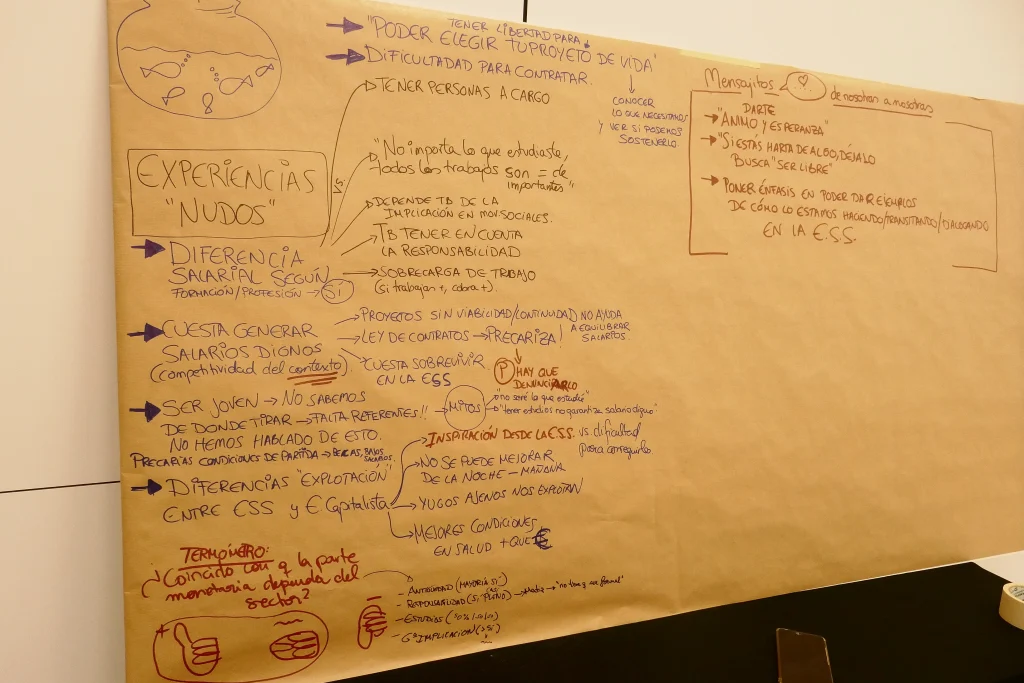 TENER LIBERTAD PARA
"PODER ELEGIR TU PROYETO DE VIDA"
DiFiCULTADAD PARA CONTRATAR.
CONOCER
LO QUE NECESITAMOS
Y VER SI PODEMOS
SOSTENERLO.
EXPERIENCIAS
"NUDOS"
DIFERENCIA
SALARIAL SEGÚN
FORMACIÓN/PROFESIÓN → SÍ
SÍ
TENER PERSONAS A CARGO
"No importa lo que estudiaste,
todos los trabajos son = de
importantes"
DEPENDE TB DE LA
IMPLICACIÓN EN MOV. SOCIALES.
TB TENER EN CUENTA
LA RESPONSABILIDAD
SOBRECARGA DE TRABAJO
(si trabajan +, cobra +).
CUESTA GENERAR
SALARIOS DIGNOS
(competitividad del contexto)
PROYECTOS SIN VIABILIDAD/CONTINUIDAD NO AYUDA
A EQUILIBRAR
SALARIOS.
LEY DE CONTRATOS → PRECARIZA!
P HAY QUE
DENUNCIARLO
CUESTA SOBREVIVIR
EN LA ESS
SER JOVEN → NO SABEMOS
DE DONDE TIRAR → FALTA REFERENTES!!
NO HEMOS HABLADO DE ESTO.
PRECARIAS CONDICIONES DE PARTIDA → BECAS, BAJOS
SALARIOS.
MITOS
"no seré lo que estudié"
"tener estudios no garantiza salario digno"
DIFERENCIAS "EXPLOTACIÓN"
ENTRE ESS y E Capitalista
INSPIRACIÓN DESDE LA E.S.S. vs. dificultad
para conseguirlo
NO SE PUEDE MEJORAR
DE LA NOCHE - MAÑANA
YUGOS AJENOS NOS EXPLOTAN
MEJORES CONDICIONES
EN SALUD + QUE €
TERMÓMETRO:
¿Coincido con q la parte
monetaria dependa del
sector?
+
- ANTIGÜEDAD (MAYORÍA SI)
- RESPONSABILIDAD (SI PLENO) → Matiz → "no tiene q ser formal"
- ESTUDIOS
- Gº IMPLICACIÓN
Mensajitos
de nosotras a nosotras
DARTE
"ÁNIMO Y ESPERANZA"
"SI ESTÁS HARTA DE ALGO, DÉJALO
BUSCA "SER LIBRE"
PONER ÉNFASIS EN PODER DAR EJEMPLOS
DE CÓMO LO ESTAMOS HACIENDO/TRANSITANDO/DIALOGANDO
EN LA E.S.S.